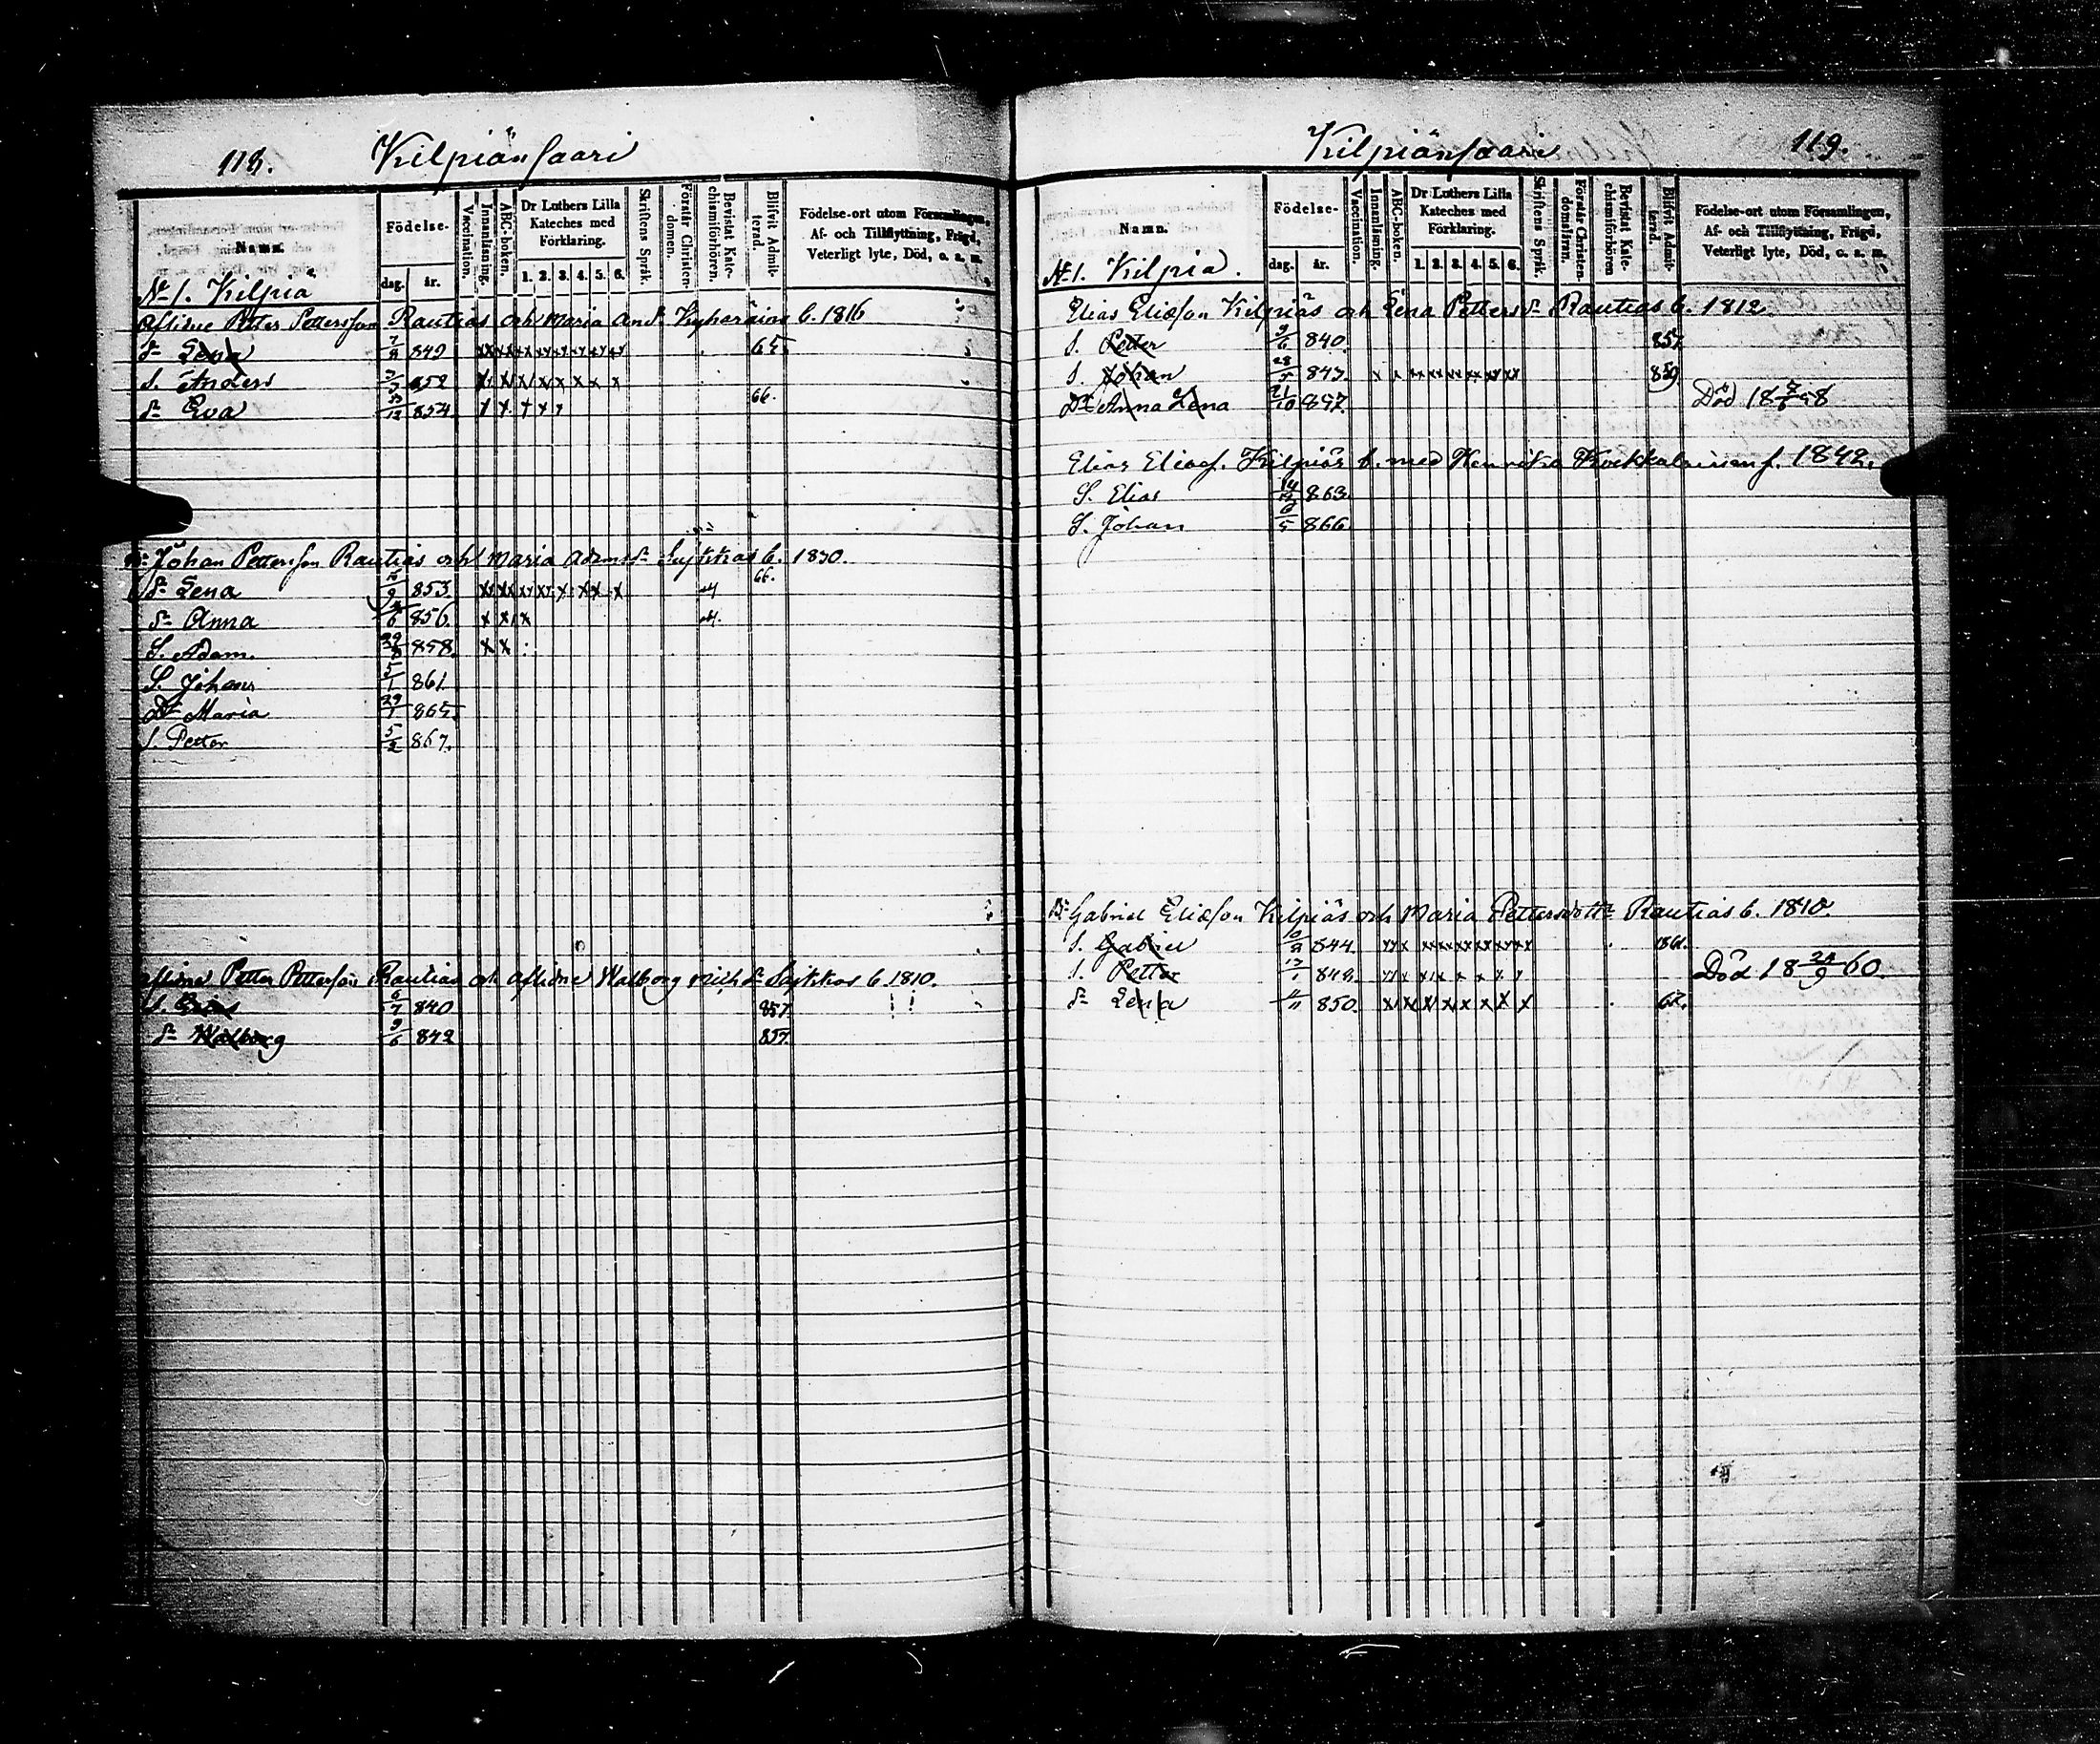 118. Kilpiänsaari
Namn.
Födelse-
dag. år.
Vaccination.
Innanläsning.
ABC-boken.
Dr Luthers Lilla Kateches med Förklaring.
1. 2. 3. 4. 5. 6.
Skriftens Språk.
Förstår Christendomen.
Bevistat Katechismiförhören.
Blifvit Admitterad.
Födelse-ort utom Församlingen, Af- och Tillflyttning, Frägd, Veterligt lyte, Död, o. s. m.
No 1. Kilpiä
Aflidne Petter Pettersson Rautias och Maria And.dr b. 1816
Dr Lena 7/8 849 65.
S. Anders 852
Dr Eva 854 66.
Johan Pettersson Rautias och Maria Adamsdr b. 1830.
Dr Lena 853 66.
Dr Anna 856
S. Adam. 858.
S. Johan 5/1 861
Dr Maria 29/1 865
S. Petter 5/2 867.
Aflidne Petter Pettersson Rautias och Aflidne Walborg b. 1810.
S. 6/7 840 857.
Dr Walborg 9/6 842 857.
Kilpiänsaari 119.
Namn.
Födelse-
dag. år.
Vaccination.
Innanläsning.
ABC-boken.
Dr Luthers Lilla Kateches med Förklaring.
1. 2. 3. 4. 5. 6.
Skriftens Språk.
Förstår Christendomsläran.
Bevistat Katechismiförhören
Blifvit Admitterad.
Födelse-ort utom Församlingen, Af- och Tillflyttning, Frägd, Veterligt lyte, Död, o. s. m.
No 1. Kilpiä.
Elias Eliasson Kilpiäs och Lena Pettersdr Rautias b. 1812.
S. Petter 9/6 840. 857.
S. Johan 28/5 847. 859
Dr Anna Lena 21/10 857. Död 18 58
Elias Eliass. Kilpiäs b. med Henrika f. 1842.
S. Elias 14/12 863.
S. Johan 6/5 866
Gabriel Eliasson Kilpiäs och Maria Pettersdottr Rautias b. 1840.
S. Gabriel 844 1861.
S. Petter 848. Död 18 24/9 60.
Dr Lena 11/11 850. 67.